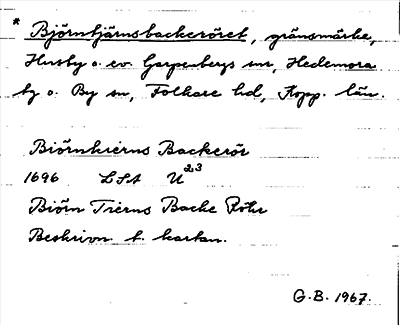 * Björntjärnsbackeröret, gränsmärke,
Husby o. ev. Garpenbergs sn, Hedemora
tg o. By sn, Folkare hd, Kopp. län.
Biörnkierns Backerör
1696 LSA U²³
Biörn Tierns Backe Röhr
Beskrivn t. kartan.
G.B. 1967.